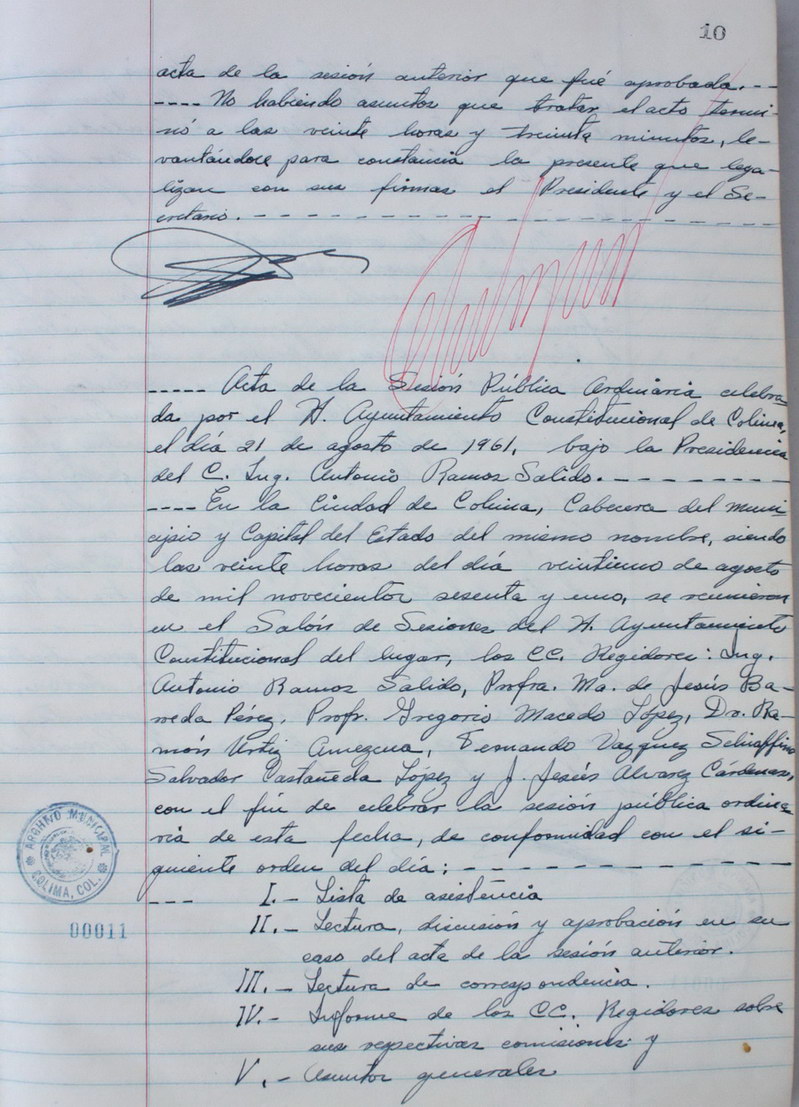 10
acta de la sesión anterior que fué aprobada. --
---- No habiendo asuntos que tratar el acto termi-
nó a las veinte horas y treinta minutos, le-
vantándose para constancia la presente que lega-
lizan con sus firmas el Presidente y el Se-
cretario. - - - - - - - - - - - - - - - - - -
----- Acta de la Sesión Pública Ordinaria celebra-
da por el H. Ayuntamiento Constitucional de Colima,
el día 21 de agosto de 1961, bajo la Presidencia
del C. Ing. Antonio Ramos Salido. - - - - - - - -
---- En la Ciudad de Colima, Cabecera del muni-
cipio y Capital del Estado del mismo nombre, siendo
las veinte horas del día veintiuno de agosto
de mil novecientos sesenta y uno, se reunieron
en el Salón de Sesiones del H. Ayuntamiento
Constitucional del lugar, los CC. Regidores: Ing.
Antonio Ramos Salido, Profra. Ma. de Jesús Ba-
rreda Pérez, Profr. Gregorio Macedo López, Dr. Ra-
món Urtiz Amezcua, Fernando Vazquez Schiaffino
Salvador Castañeda López y J. Jesús Alvarez Cárdenas,
con el fin de celebrar la sesión pública ordina-
ria de esta fecha, de conformidad con el si-
guiente orden del día: - - - - - - - - - - - -
--- I.- Lista de asistencia
II.- Lectura, discusión y aprobación en su
caso del acta de la sesión anterior.
III.- Lectura de correspondencia.
IV.- Informe de los CC. Regidores sobre
sus respectivas comisiones y
V.- Asuntos generales
ARCHIVO MUNICIPAL
COLIMA, COL.
00011